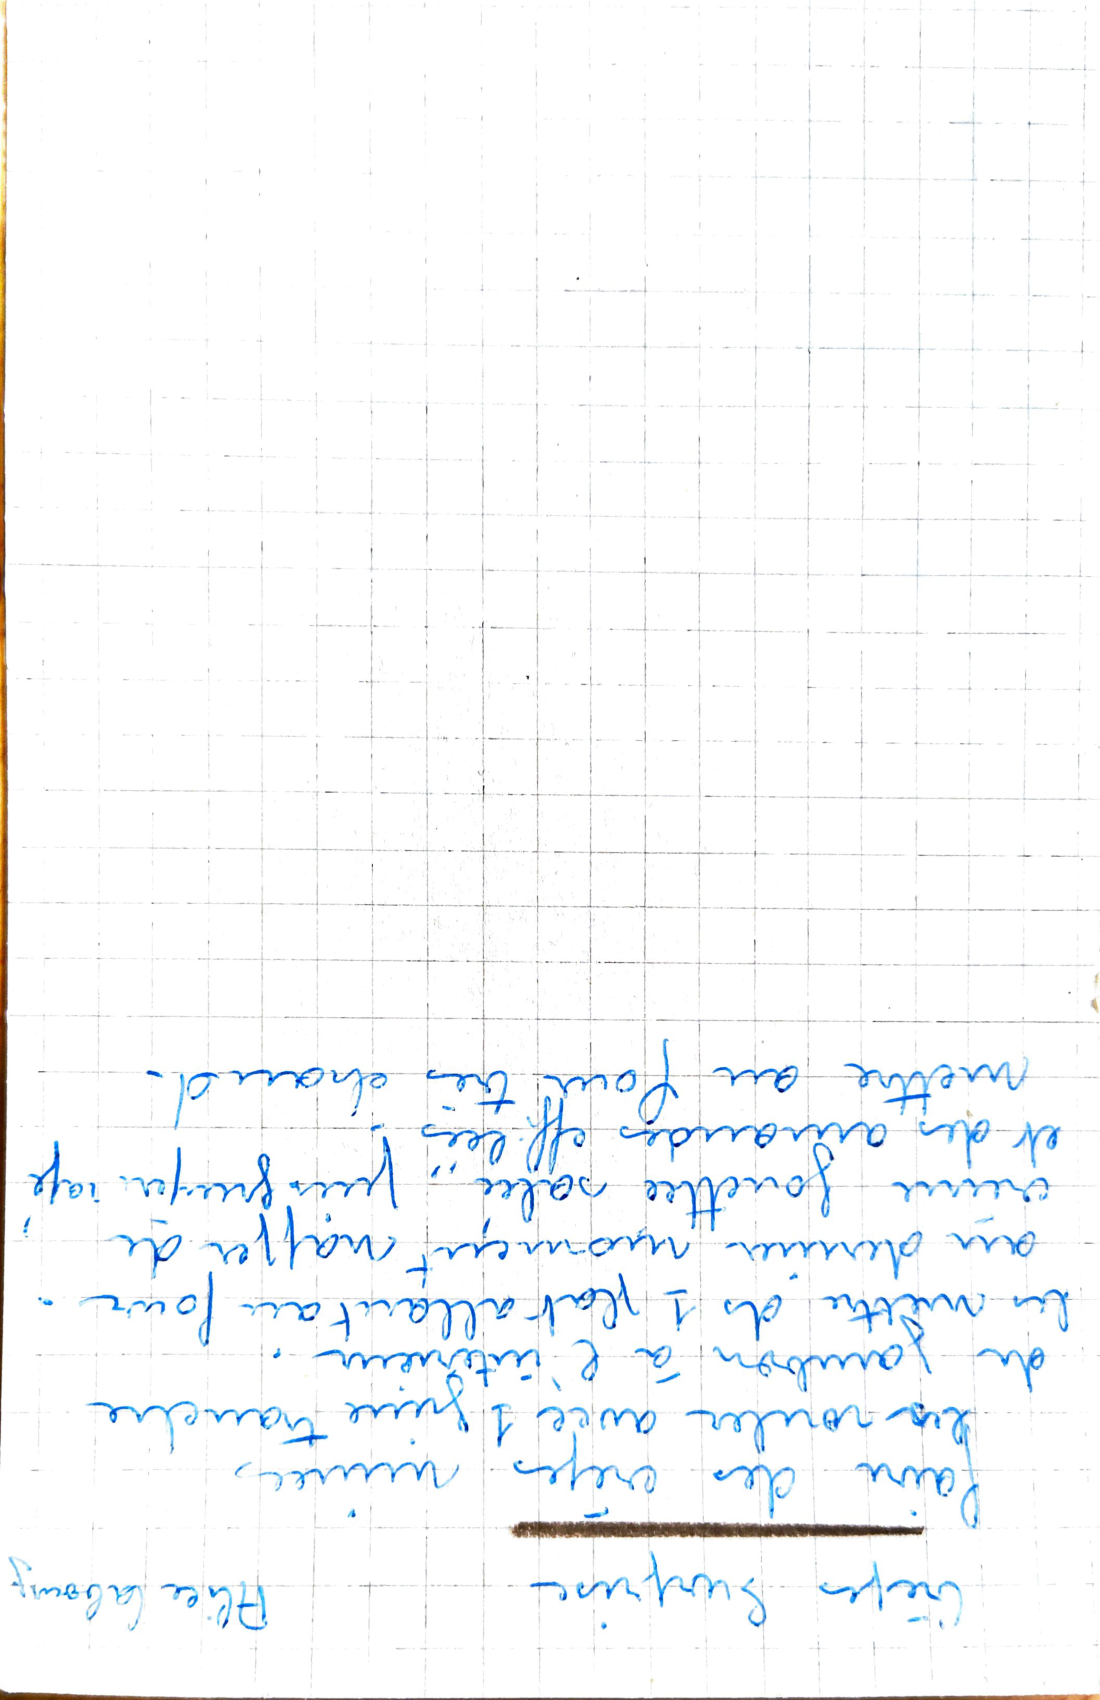 Crêpes Surprise Alice
faire des crêpes minces,
les rouler avec 1 fine tranche
de jambon à l'intérieur.
les mettre ds 1 plat allant au four.
au dernier moment napper de
crème fouettée salée, puis gruyère rapé
et des amandes effilées.
mettre au four très chaud.